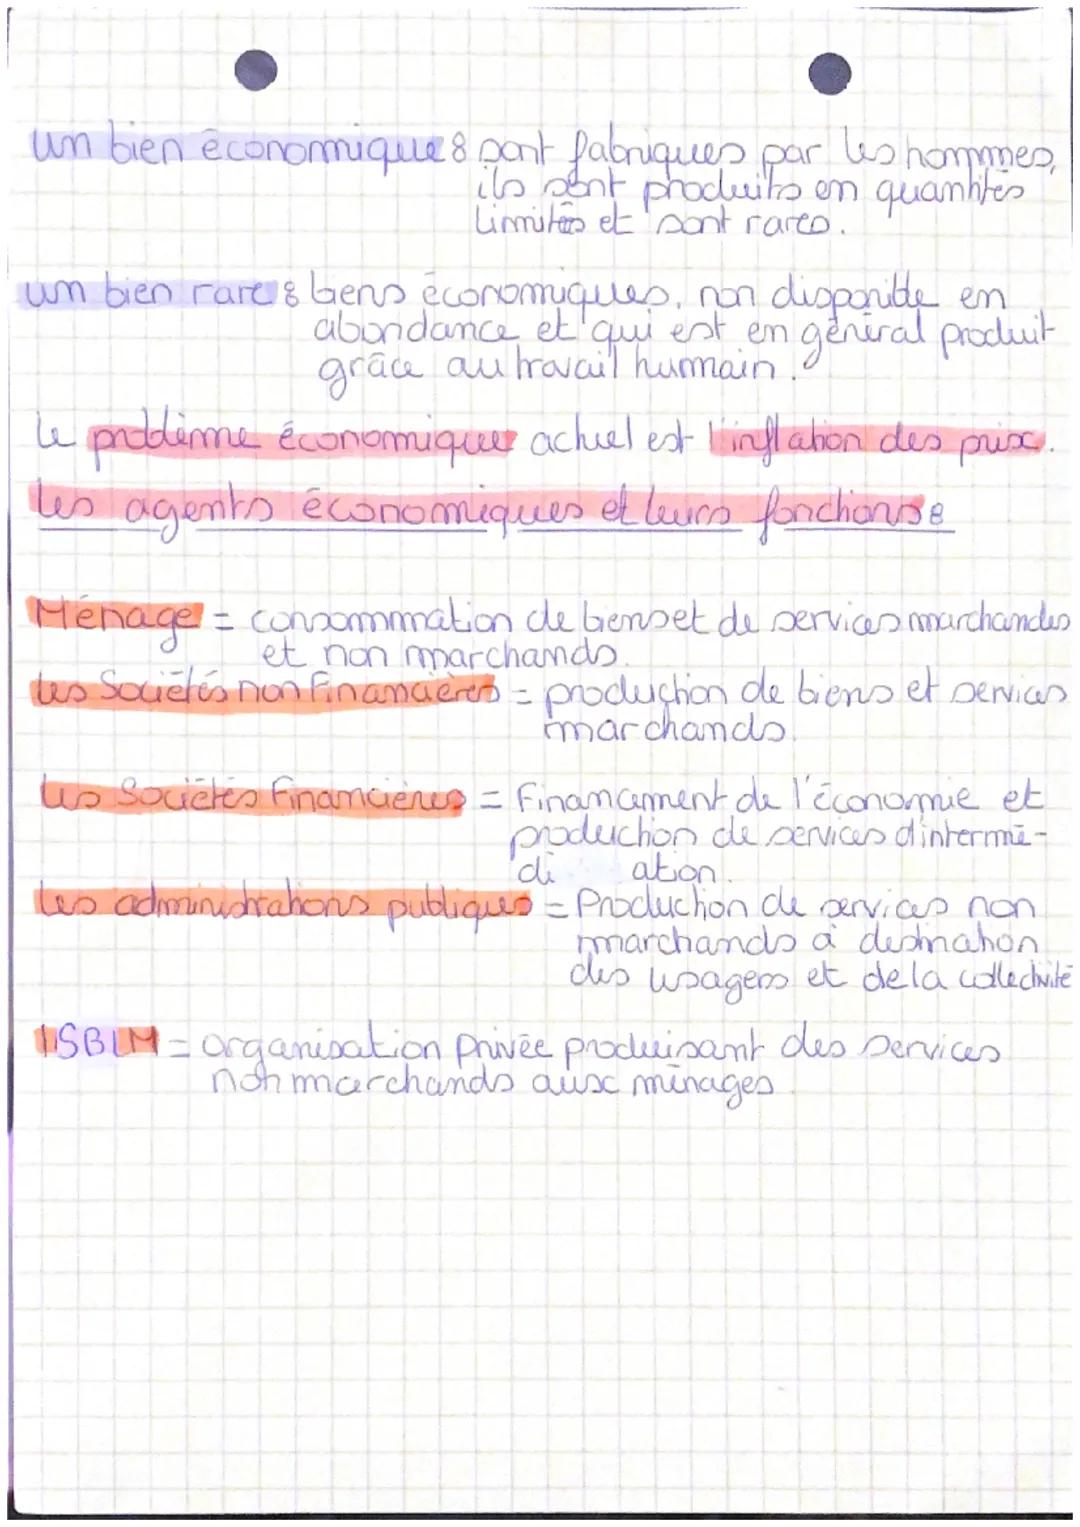 un bien économique : sont fabriques par les hommes,
ils sont produits en quantités
limités et sont rares.
un bien rare : biens économiques, non disponible en
abondance et qui est en général produit
grâce au travail humain.
le problème économique actuel est l'inflation des prix.
les agents économiques et leurs fonctions :
Ménage = consommation de biens et de services marchandes
et non marchands.
Les Sociétés non financières = production de biens et services
marchands.
Les Sociétés Financières = Financement de l'économie et
production de services d'intermé-
di ation.
Les administrations publiques = Production de services non
marchands à destination
des usagers et de la collectivité
ISBLM = organisation privée produisant des services
non marchands aux ménages.